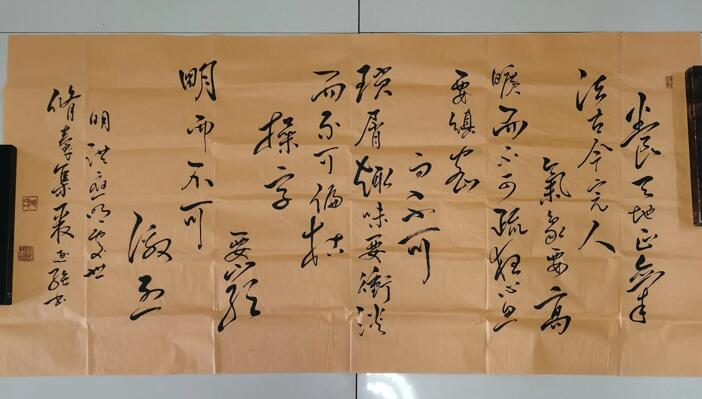 養天地正氣
法古今完人
氣象要高
曠而不可疏狂心思
要縝密
而不可
瑣屑趣味要衝淡
而不可偏枯
操守
要嚴
明而不可
激烈
明洪应明處世